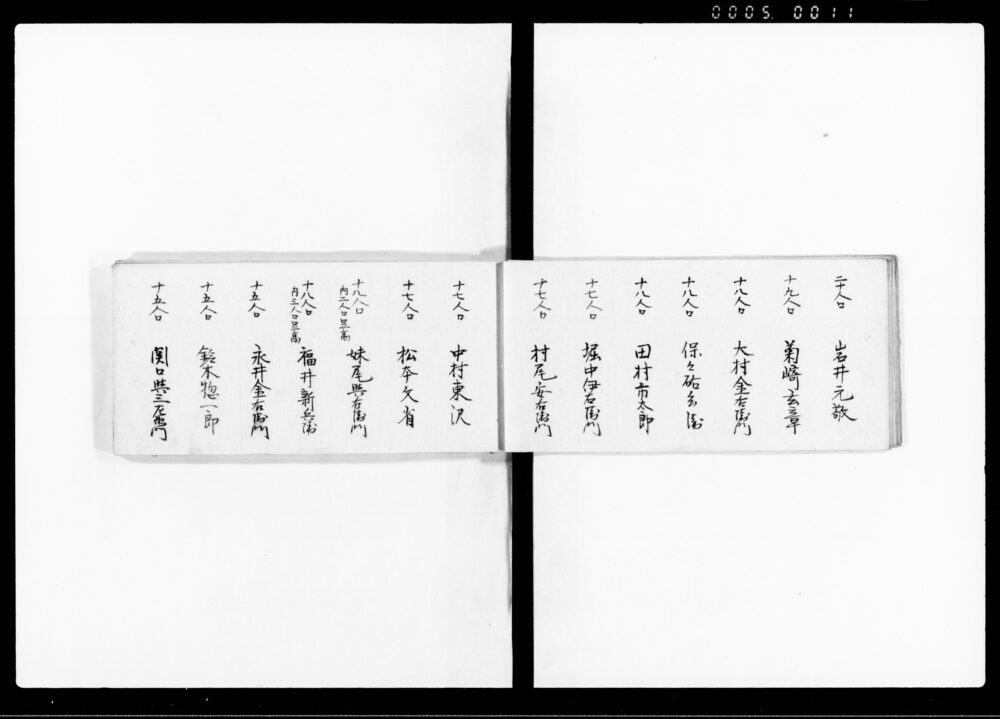 0005. 0011
二十人口 岩井元敬
十九人口 菊崎玄章
十八人口 大村金右衛門
十八人口 保々祐兵衛
十八人口 田村市太郎
十七人口 堀中伊右衛門
十七人口 村尾安右衛門
十七人口 中村東沢
十七人口 松本文省
十八人口 内二人口足高 妹尾與右衛門
十八人口 内三人口足高 福井新兵衛
十五人口 永井金右衛門
十五人口 鈴木惣一郎
十五人口 関口與三左衛門